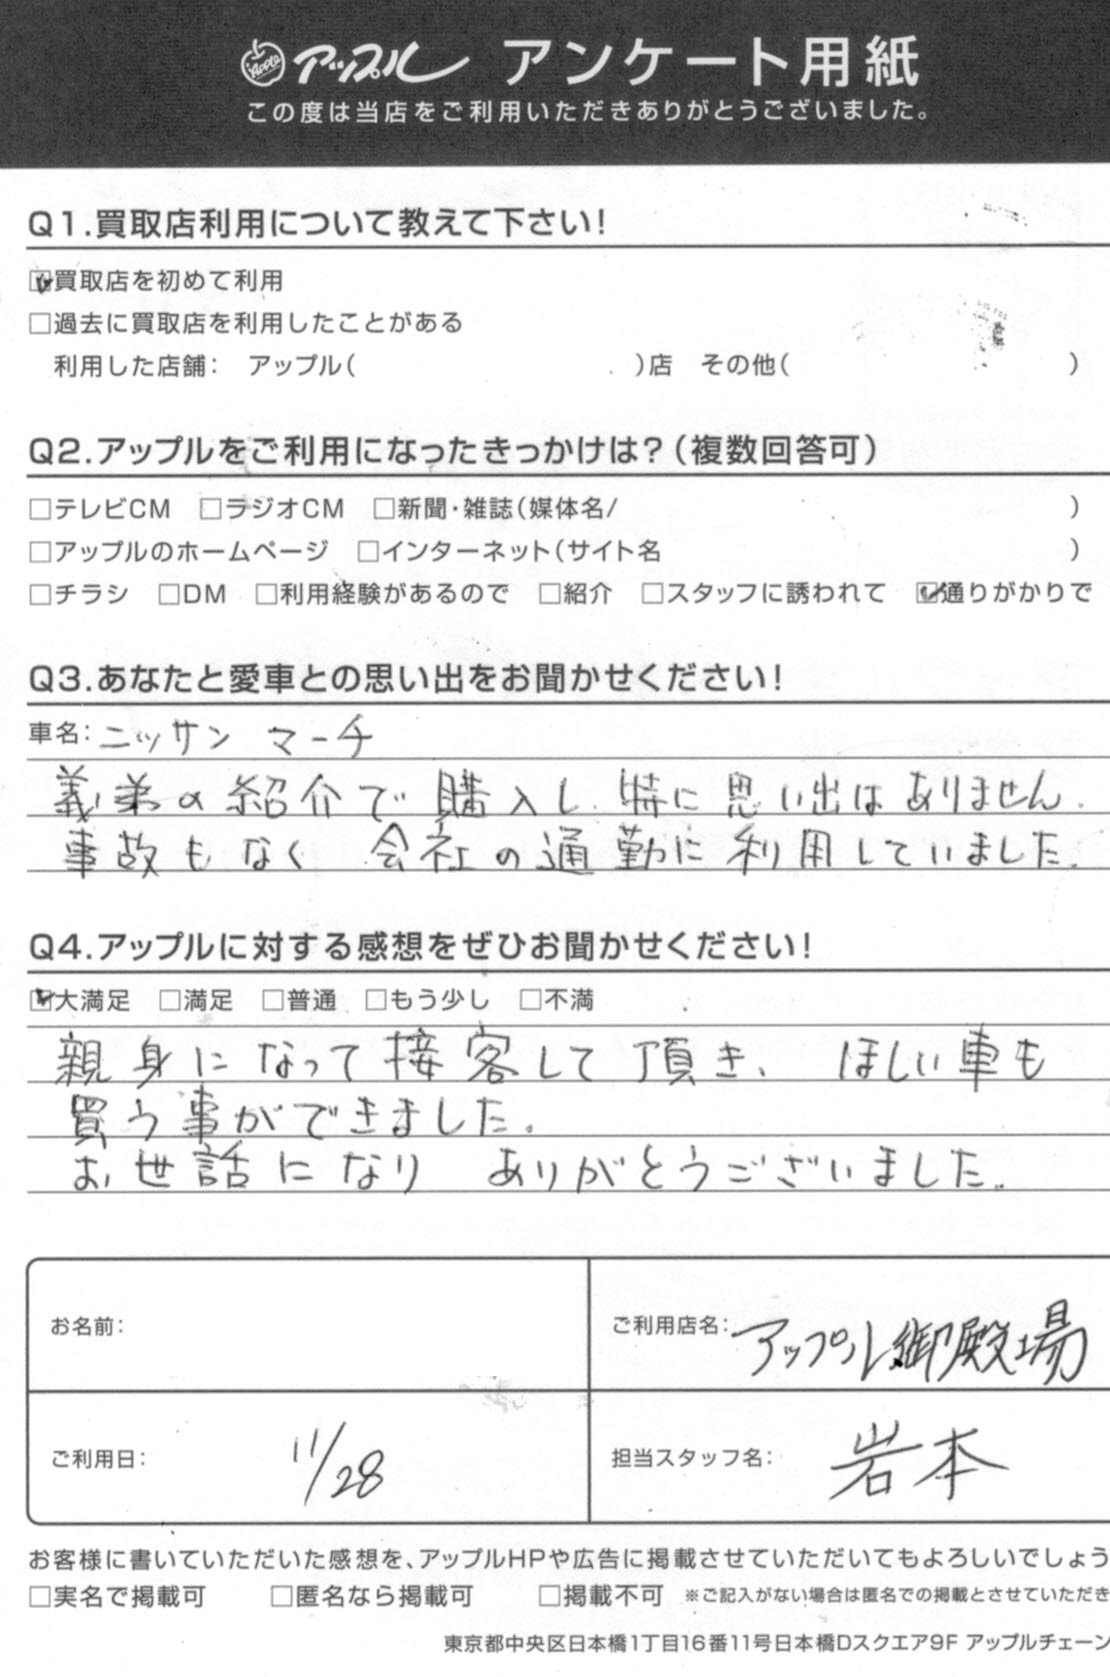 Apple アップル アンケート用紙
この度は当店をご利用いただきありがとうございました。
Q1.買取店利用について教えて下さい!
☑買取店を初めて利用
□過去に買取店を利用したことがある
利用した店舗: アップル( )店 その他( )
Q2.アップルをご利用になったきっかけは?(複数回答可)
□テレビCM □ラジオCM □新聞・雑誌(媒体名/ )
□アップルのホームページ □インターネット(サイト名 )
□チラシ □DM □利用経験があるので □紹介 □スタッフに誘われて ☑通りがかりで
Q3.あなたと愛車との思い出をお聞かせください!
車名: ニッサン マーチ
義弟の紹介で購入し、特に思い出はありません。
事故もなく 会社の通勤に利用していました。
Q4.アップルに対する感想をぜひお聞かせください!
☑大満足 □満足 □普通 □もう少し □不満
親身になって接客して頂き、ほしい車も
買う事ができました。
お世話になり ありがとうございました。
お名前: ご利用店名: アップル御殿場
ご利用日: 11/28 担当スタッフ名: 岩本
お客様に書いていただいた感想を、アップルHPや広告に掲載させていただいてもよろしいでしょう
□実名で掲載可 □匿名なら掲載可 □掲載不可 ※ご記入がない場合は匿名での掲載とさせていただき
東京都中央区日本橋1丁目16番11号日本橋Dスクエア9F アップルチェーン